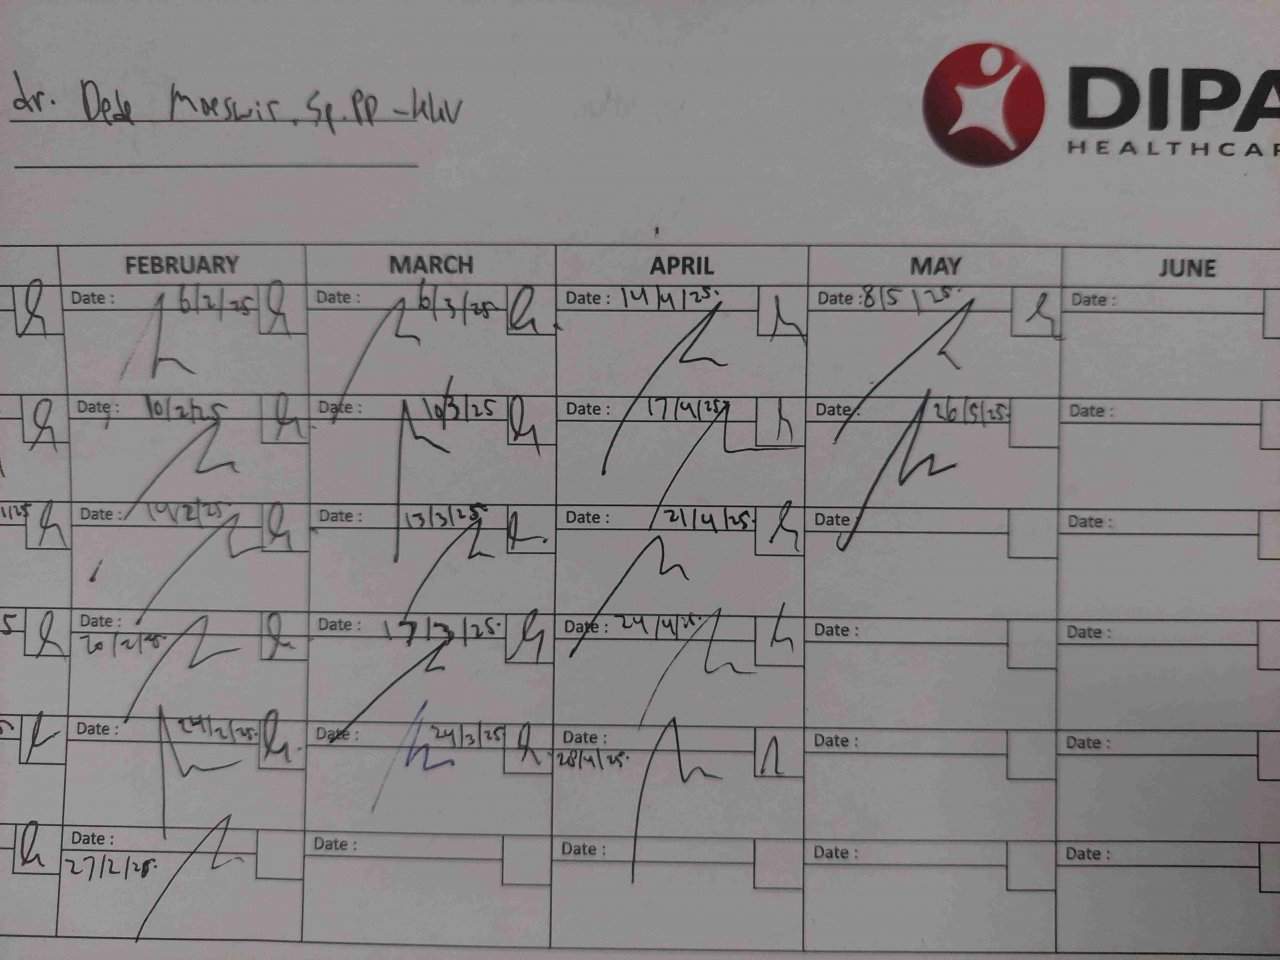 dr. Dede Moeswir. Sp.PD - KKV
DIPA
HEALTHCAR
FEBRUARY MARCH APRIL MAY JUNE
Date : 6/2/25 Date : 6/3/25 Date : 14/4/25. Date : 8/5/25. Date :
Date : 10/2/25 Date : 10/3/25 Date : 17/4/25 Date : 26/5/25. Date :
1/25 Date : 14/2/25. Date : 13/3/25. Date : 21/4/25. Date : Date :
5 Date : 20/2/25. Date : 17/3/25. Date : 24/4/25. Date : Date :
Date : 24/2/25. Date : 24/3/25 Date : 28/4/25. Date : Date :
Date : 27/2/25. Date : Date : Date : Date :